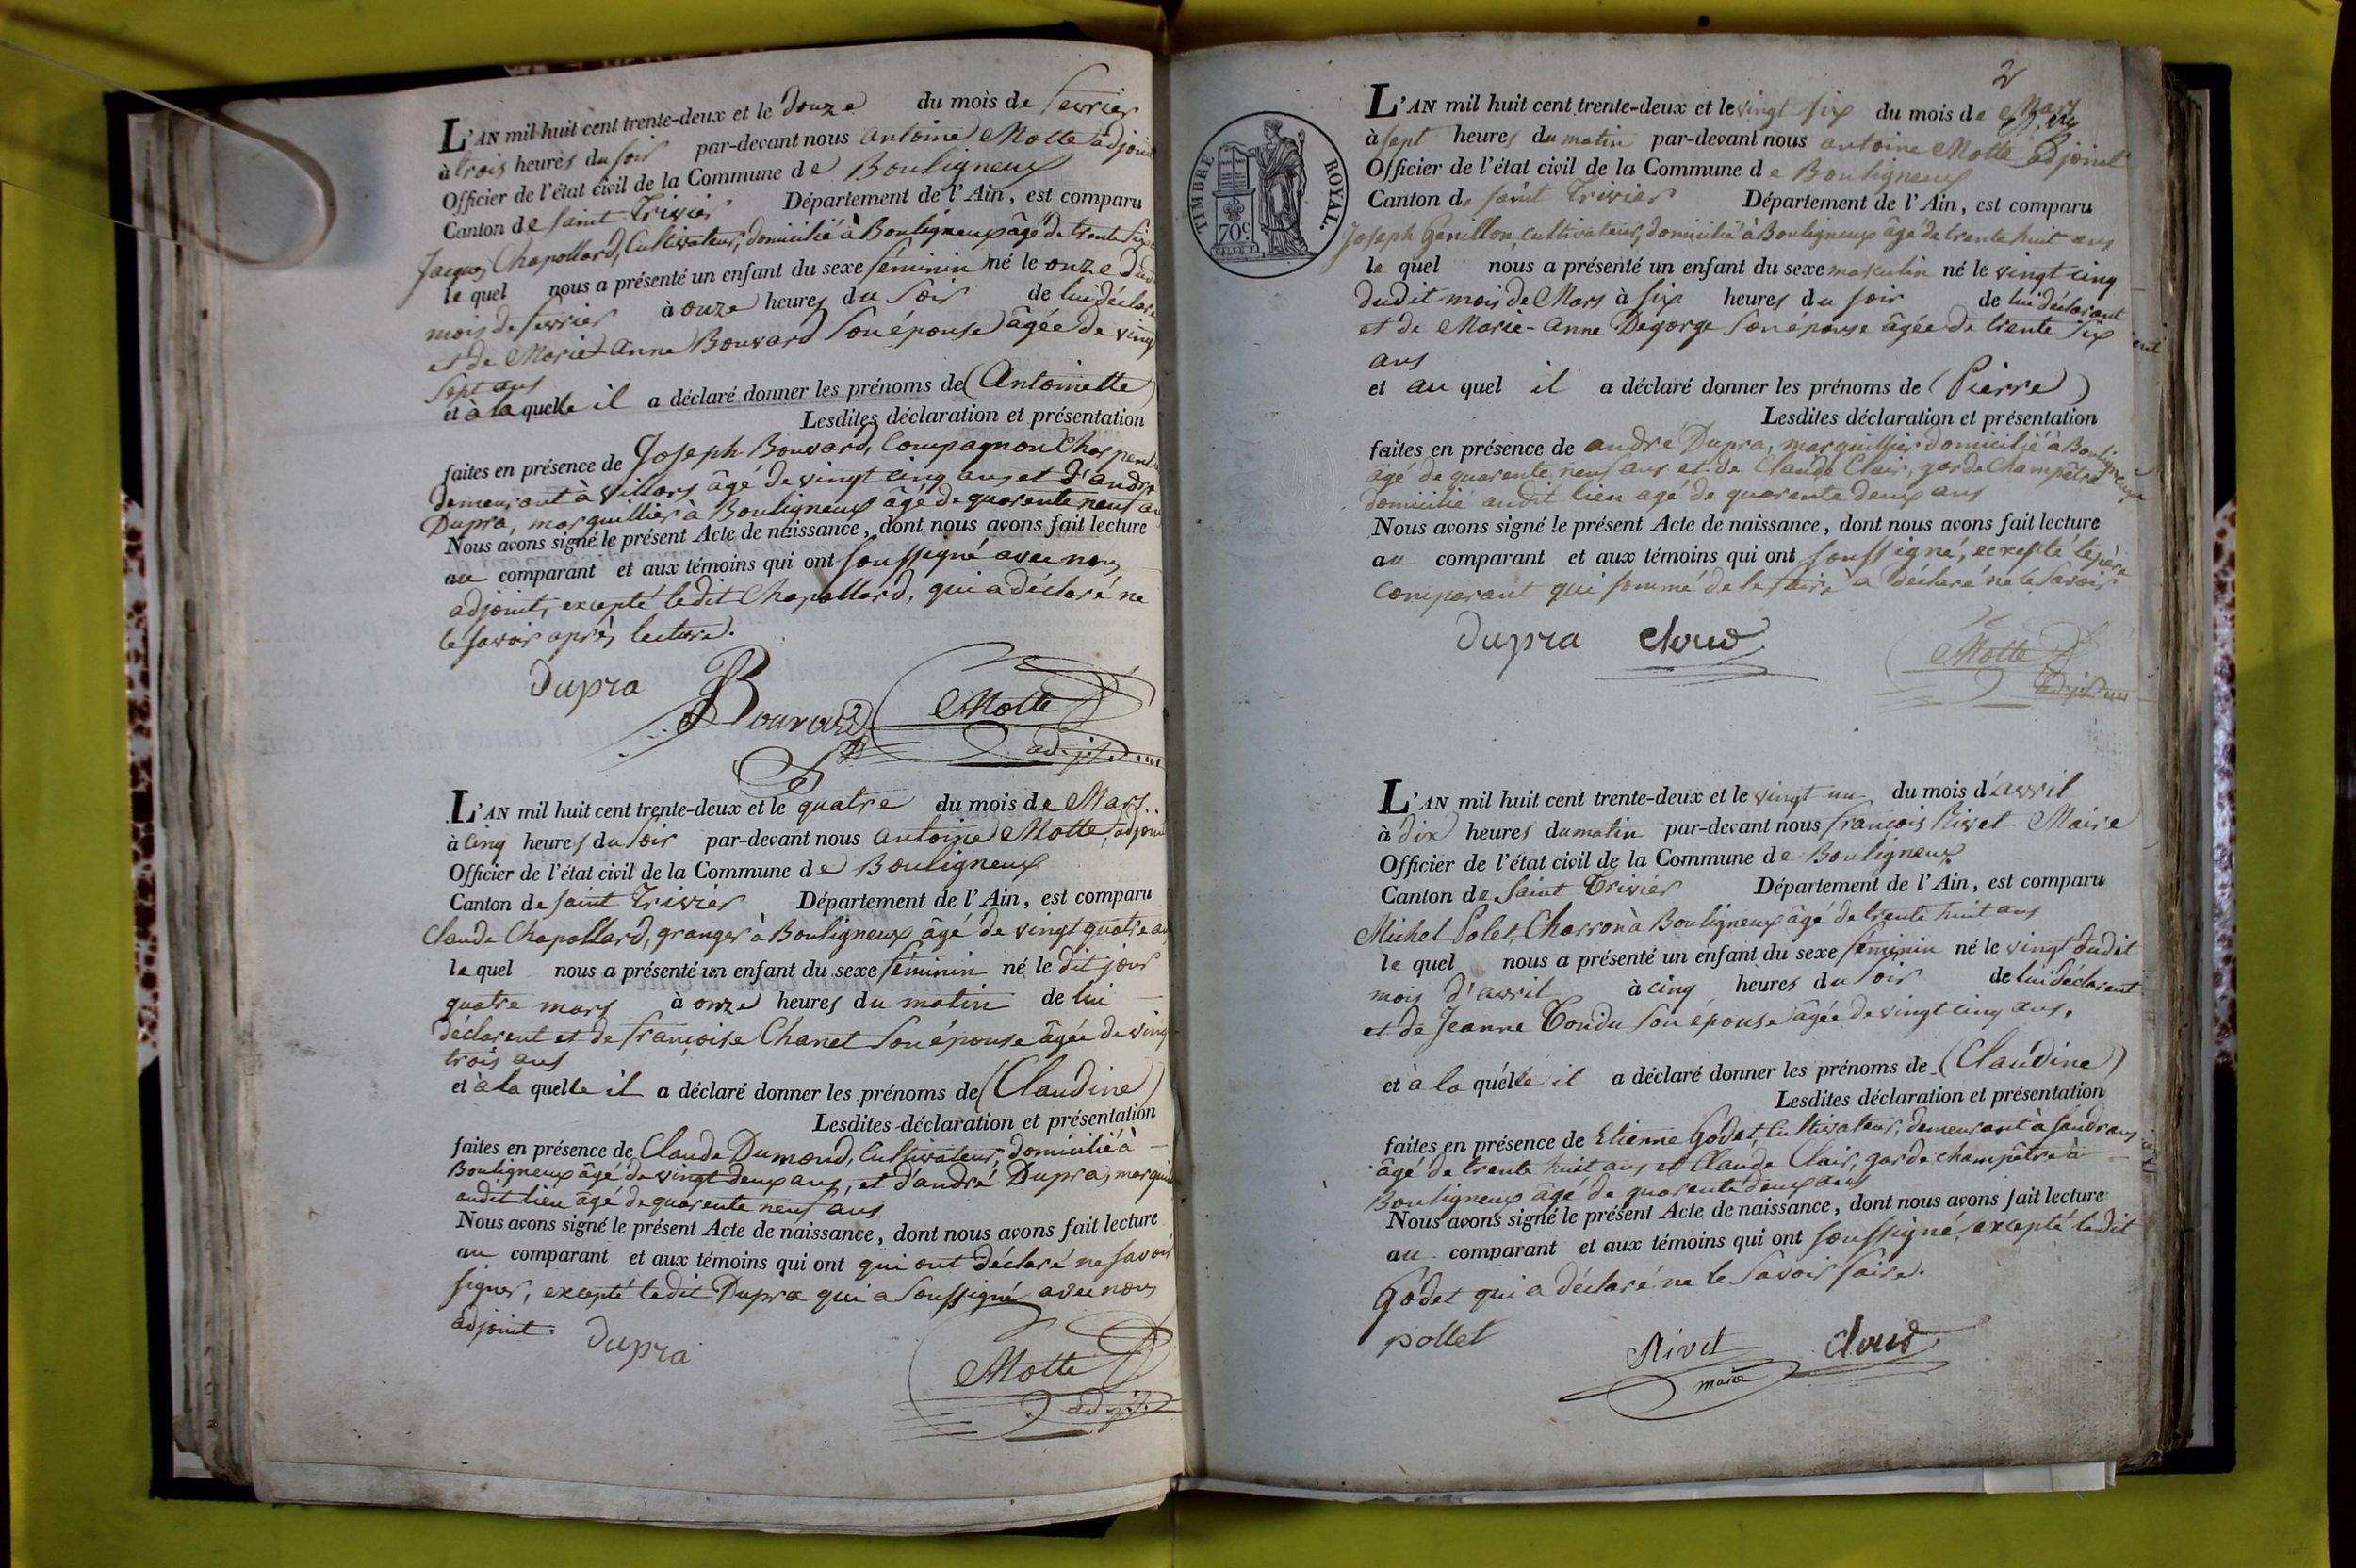 L'AN mil huit cent trente-deux et le douze du mois de fevrier
à trois heures du soir par-devant nous antoine Motte adjoint
Officier de l'état civil de la Commune de Bouligneux
Canton de saint Trivier Département de l'Ain, est comparu
Jacques Chapollard, Cultivateur, domicilié à Bouligneux âgé de trente six
le quel nous a présenté un enfant du sexe féminin né le onze dud
mois de fevrier à onze heures du soir de lui déclare
et de Marie-anne Bouvard son épouse âgée de vingt
sept ans
et à la quelle il a déclaré donner les prénoms de (Antoinette)
Lesdites déclaration et présentation
faites en présence de Joseph Bouvard, Compagnon Charpentie
demeurant à Villars âgé de vingt cinq ans et d'andré
Dupra, marguillier à Bouligneux âgé de quarente neuf an
Nous avons signé le présent Acte de naissance, dont nous avons fait lecture
au comparant et aux témoins qui ont soussigné avec nous
adjoint, excepté ledit Chapollard, qui a déclaré ne
le savoir après lecture.
Dupra Bouvard Motte
adjt
L'AN mil huit cent trente-deux et le quatre du mois de Mars
à cinq heures du soir par-devant nous antoine Motte, adjoint
Officier de l'état civil de la Commune de Bouligneux
Canton de saint Trivier Département de l'Ain, est comparu
Claude Chapollard, granger à Bouligneux âgé de vingt quatre an
le quel nous a présenté un enfant du sexe féminin né le dit jour
quatre mars à onze heures du matin de lui
déclarent et de françoise Chanel son épouse âgée de vingt
trois ans
et à la quelle il a déclaré donner les prénoms de (Claudine)
Lesdites déclaration et présentation
faites en présence de Claude Dumond, Cultivateur, domicilié à
Bouligneux âgé de vingt deux ans, et d'andré Dupra, marguil
audit lieu âgé de quarente neuf ans
Nous avons signé le présent Acte de naissance, dont nous avons fait lecture
au comparant et aux témoins qui ont qui ont déclaré ne savoir
signer, excepté ledit Dupra qui a soussigné avec nous
adjoint.
Dupra
Motte
adjt
2
TIMBRE ROYAL.
70c
L'AN mil huit cent trente-deux et le vingt six du mois de Mars
à sept heures du matin par-devant nous antoine Motte adjoint
Officier de l'état civil de la Commune de Bouligneux
Canton de saint Trivier Département de l'Ain, est comparu
Joseph Genillon, cultivateur, domicilié à Bouligneux âgé de trente huit ans
le quel nous a présenté un enfant du sexe masculin né le vingt cinq
dudit mois de Mars à six heures du soir de lui déclarant
et de Marie-anne Degorge son épouse âgée de trente six
ans
et au quel il a déclaré donner les prénoms de (Pierre)
Lesdites déclaration et présentation
faites en présence de andré Dupra, marguillier domicilié à Bouligneux
âgé de quarente neuf ans et de Claude Clair, garde Champêtre
domicilié audit lieu agé de quarente deux ans
Nous avons signé le présent Acte de naissance, dont nous avons fait lecture
au comparant et aux témoins qui ont soussigné, excepté le père
comparant qui sommé de le faire a déclaré ne le savoir
Dupra
Motte
L'AN mil huit cent trente-deux et le vingt un du mois d'avril
à dix heures du matin par-devant nous françois Rivet Maire
Officier de l'état civil de la Commune de Bouligneux
Canton de Saint Trivier Département de l'Ain, est comparu
Michel Polet, Charron à Bouligneux âgé de trente huit ans
le quel nous a présenté un enfant du sexe féminin né le vingt dudit
mois d'avril à cinq heures du soir de lui déclarent
et de Jeanne Tondu son épouse âgée de vingt cinq ans.
et à la quelle il a déclaré donner les prénoms de (Claudine)
Lesdites déclaration et présentation
faites en présence de Etienne Godet, Cultivateur, demeurant à sandrans
âgé de trente huit ans et Claude Clair, garde champêtre à
Bouligneux âgé de quarente deux ans
Nous avons signé le présent Acte de naissance, dont nous avons fait lecture
au comparant et aux témoins qui ont soussigné, excepté ledit
Godet qui a déclaré ne le savoir faire.
pollet Rivet
maire